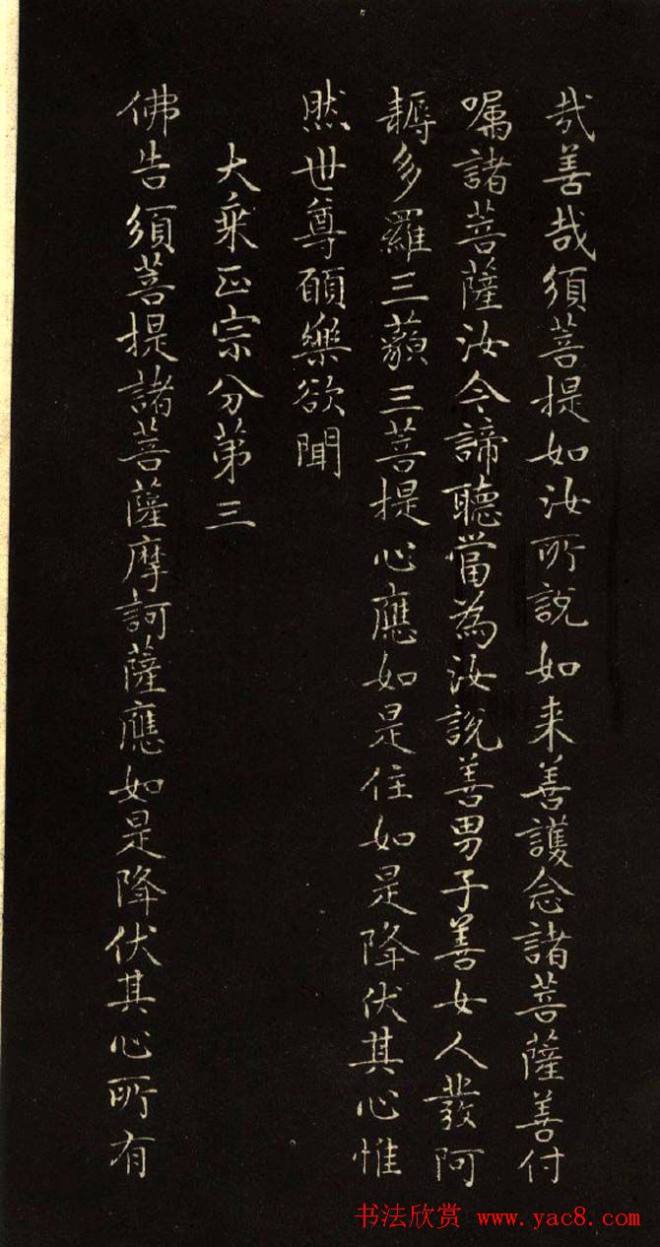 哉善哉須菩提如汝所說如来善護念諸菩薩善付
嘱諸菩薩汝今諦聽當為汝説善男子善女人發阿
耨多羅三藐三菩提心應如是住如是降伏其心惟
然世尊願樂欲聞
大乘正宗分第三
佛告須菩提諸菩薩摩訶薩應如是降伏其心所有
书法欣赏 www.yac8.com